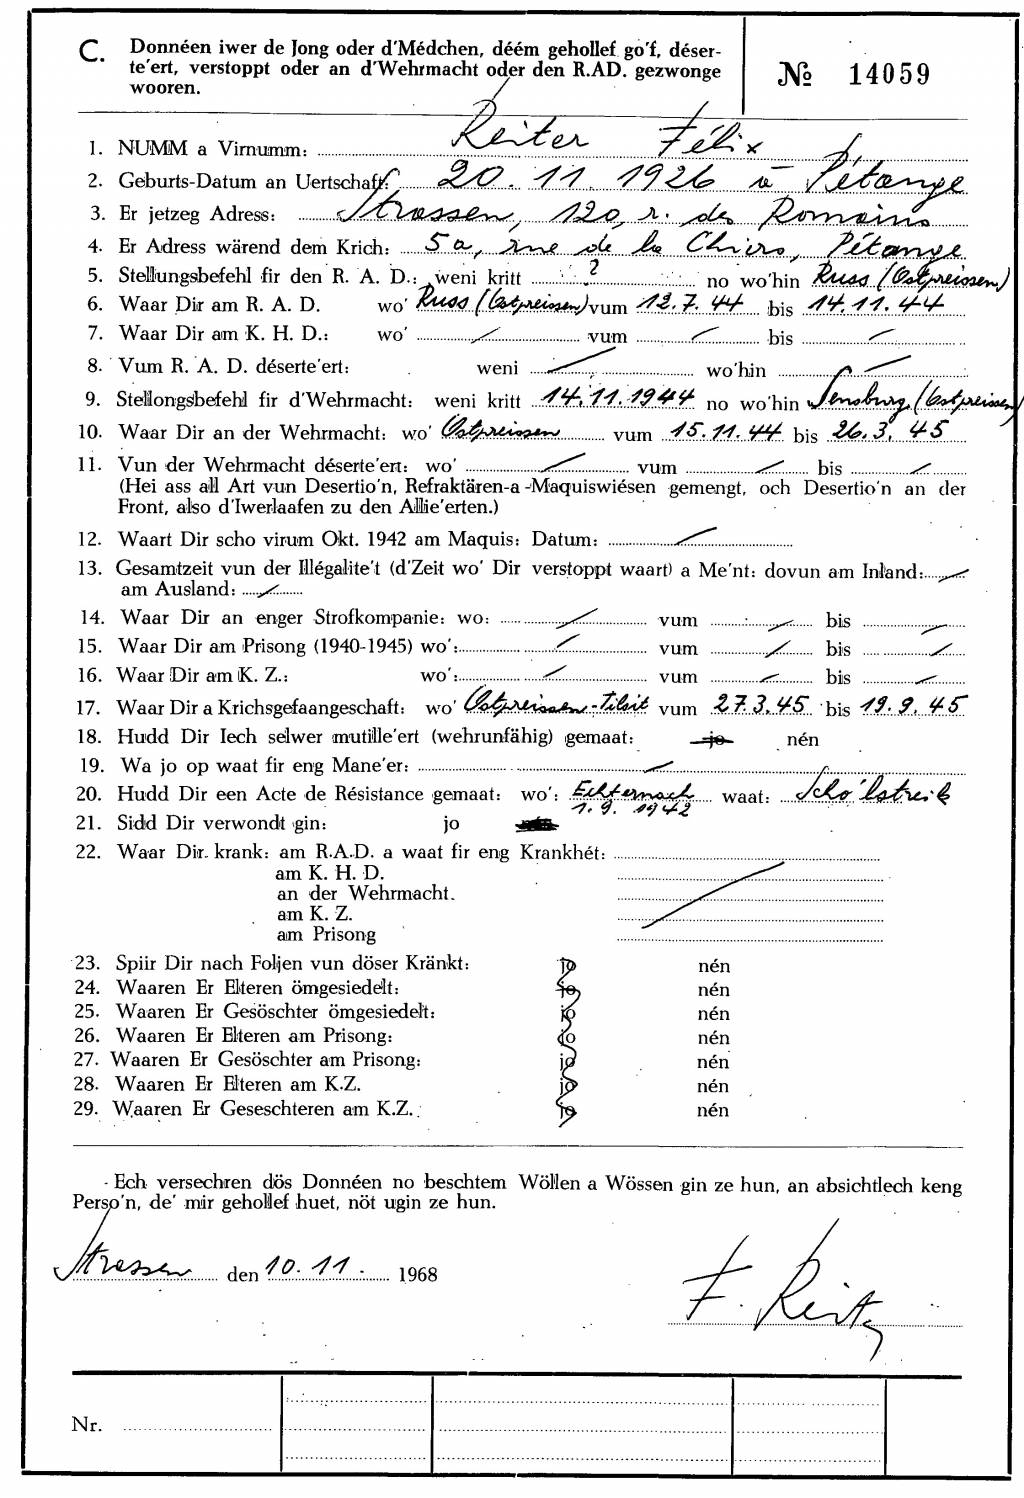 C. Donnéen iwer de Jong oder d'Médchen, déém gehollef go'f, déser-
te'ert, verstoppt oder an d'Wehrmacht oder den R.AD. gezwonge
wooren.
№ 14059
1. NUMM a Virnumm: Reiter Félix
2. Geburts-Datum an Uertschaft: 20. 11. 1926 à Pétange
3. Er jetzeg Adress: Strassen, 120, r. des Romains
4. Er Adress wärend dem Krich: 5a, rue de la Chiers, Pétange
5. Stellungsbefehl fir den R. A. D.: weni kritt ? no wo'hin Russ (Ostpreissen)
6. Waar Dir am R. A. D. wo' Russ (Ostpreissen) vum 12. 7. 44 bis 14. 11. 44
7. Waar Dir am K. H. D.: wo' vum bis
8. Vum R. A. D. déserte'ert: weni wo'hin
9. Stellongsbefehl fir d'Wehrmacht: weni kritt 14. 11. 1944 no wo'hin Sensburg (Ostpreissen)
10. Waar Dir an der Wehrmacht: wo' Ostpreissen vum 15. 11. 44 bis 26. 3. 45
11. Vun der Wehrmacht déserte'ert: wo' vum bis
(Hei ass all Art vun Desertio'n, Refraktären-a-Maquiswiésen gemengt, och Desertio'n an der
Front, also d'Iwerlaafen zu den Allie'erten.)
12. Waart Dir scho virum Okt. 1942 am Maquis: Datum:
13. Gesamtzeit vun der Illégalite't (d'Zeit wo' Dir verstoppt waart) a Me'nt: dovun am Inland:
am Ausland:
14. Waar Dir an enger Strofkompanie: wo: vum bis
15. Waar Dir am Prisong (1940-1945) wo': vum bis
16. Waar Dir am K. Z.: wo': vum bis
17. Waar Dir a Krichsgefaangeschaft: wo' Ostpreissen-Tilsit vum 27. 3. 45 bis 19. 9. 45
18. Hudd Dir Iech selwer mutille'ert (wehrunfähig) gemaat: jo nén
19. Wa jo op waat fir eng Mane'er:
20. Hudd Dir een Acte de Résistance gemaat: wo': Echternach waat: Scho'lstreik
1. 9. 1942
21. Sidd Dir verwondt gin: jo
22. Waar Dir krank: am R.A.D. a waat fir eng Krankhét:
am K. H. D.
an der Wehrmacht.
am K. Z.
am Prisong
23. Spiir Dir nach Foljen vun döser Kränkt: jo nén
24. Waaren Er Elteren ömgesiedelt: jo nén
25. Waaren Er Gesöschter ömgesiedelt: jo nén
26. Waaren Er Elteren am Prisong: jo nén
27. Waaren Er Gesöschter am Prisong: jo nén
28. Waaren Er Elteren am K.Z. jo nén
29. Waaren Er Geseschteren am K.Z. jo nén
Ech versechren dös Donnéen no beschtem Wöllen a Wössen gin ze hun, an absichtlech keng
Perso'n, de' mir gehollef huet, nöt ugin ze hun.
Strassen den 10. 11. 1968
F. Reiter
Nr.